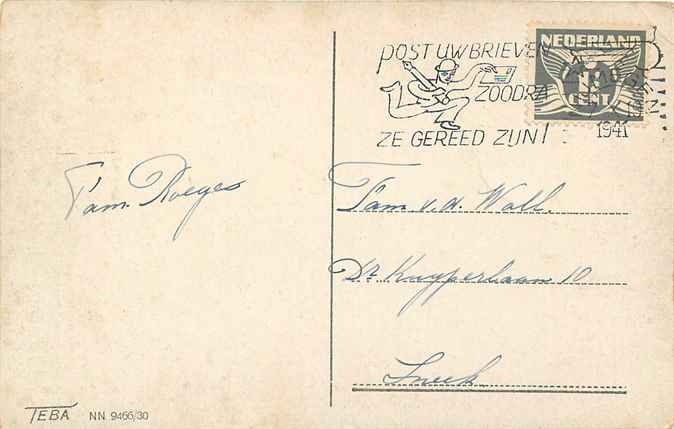 POST UW BRIEVEN
ZOODRA
ZE GEREED ZIJN!
NEDERLAND
1 CENT
1941
Fam. Roeges
Fam. v.d. Wall.
Dr. Kuyperlaan 10
Sneek.
TEBA NN 9466/30